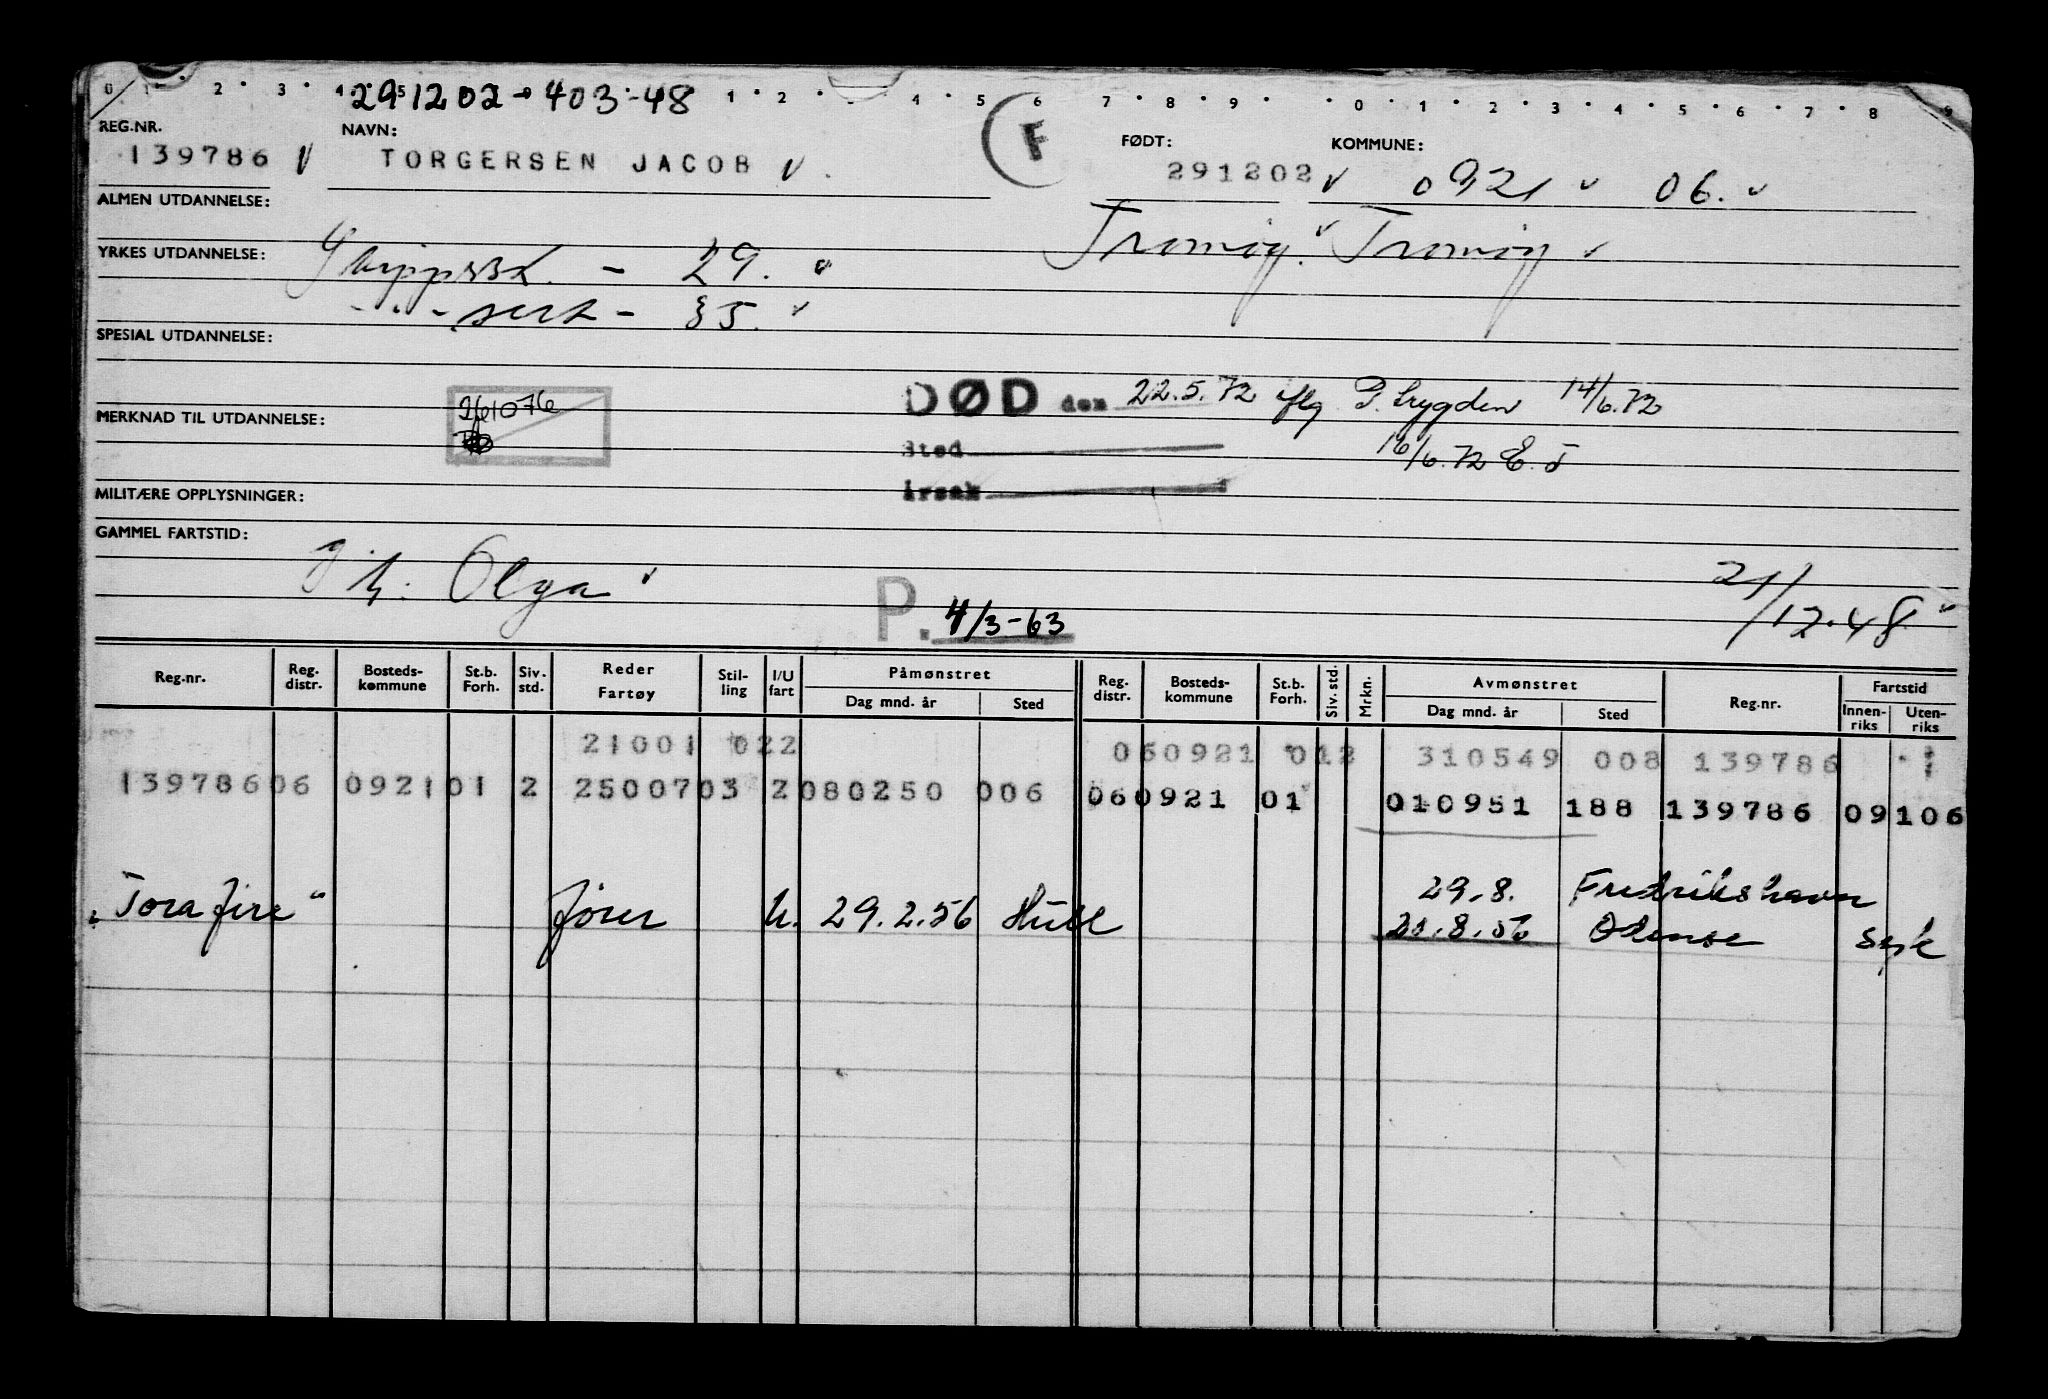 0 1 2 3 4 5 291202-403-48 1 2 4 5 6 7 8 9 0 1 2 3 4 5 6 7 8 9
REG.NR. NAVN: F FØDT: KOMMUNE:
139786 TORGERSEN JACOB 291202 0921 06.
ALMEN UTDANNELSE: Tromøy. Tromøy
YRKES UTDANNELSE: - 29.
- " - sert - 35.
SPESIAL UTDANNELSE:
DØD den 22.5.72 iflg P. Trygden 14/6.72
MERKNAD TIL UTDANNELSE: 261076
Sted 16/6.72
MILITÆRE OPPLYSNINGER: årsak
GAMMEL FARTSTID:
Olga 21/12.48
P. 4/3-63
Reg.nr. Reg. distr. Bosteds-kommune St.b. Forh. Siv. std. Reder Fartøy Stil-ling I/U fart Påmønstret Dag mnd. år Sted Reg. distr. Bosteds-kommune St.b. Forh. Siv. std. Mrkn. Avmønstret Dag mnd. år Sted Reg.nr. Fartstid Innen-riks Uten-riks
21001 022 060921 012 310549 008 139786
139786 06 0921 01 2 25007 03 2 080250 006 060921 01 010951 188 139786 09 106
29.8. Fredrikshavn
"Torafire" fører U. 29.2.56 Hull 21.8.56 Odense syk